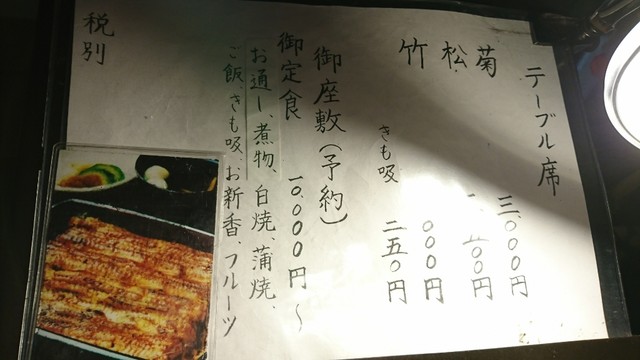 テーブル席
菊 三、〇〇〇円
松 五〇〇円
竹 〇〇〇円
きも吸 二五〇円
御座敷(予約)
御定食 一〇、〇〇〇円〜
お通し、煮物、白焼、蒲焼、
ご飯、きも吸、お新香、フルーツ
税別